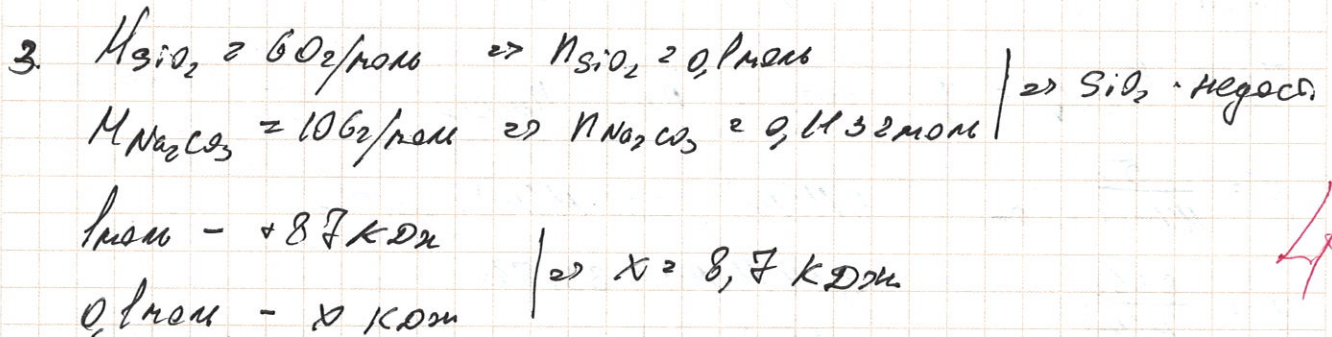 3. M SiO₂ = 60 г/моль => n SiO₂ = 0,1 моль
M Na₂CO₃ = 106 г/моль => n Na₂CO₃ = 0,1132 моль | => SiO₂ - недост.
1 моль - +87 кДж
0,1 моль - x кДж | => x = 8,7 кДж
4